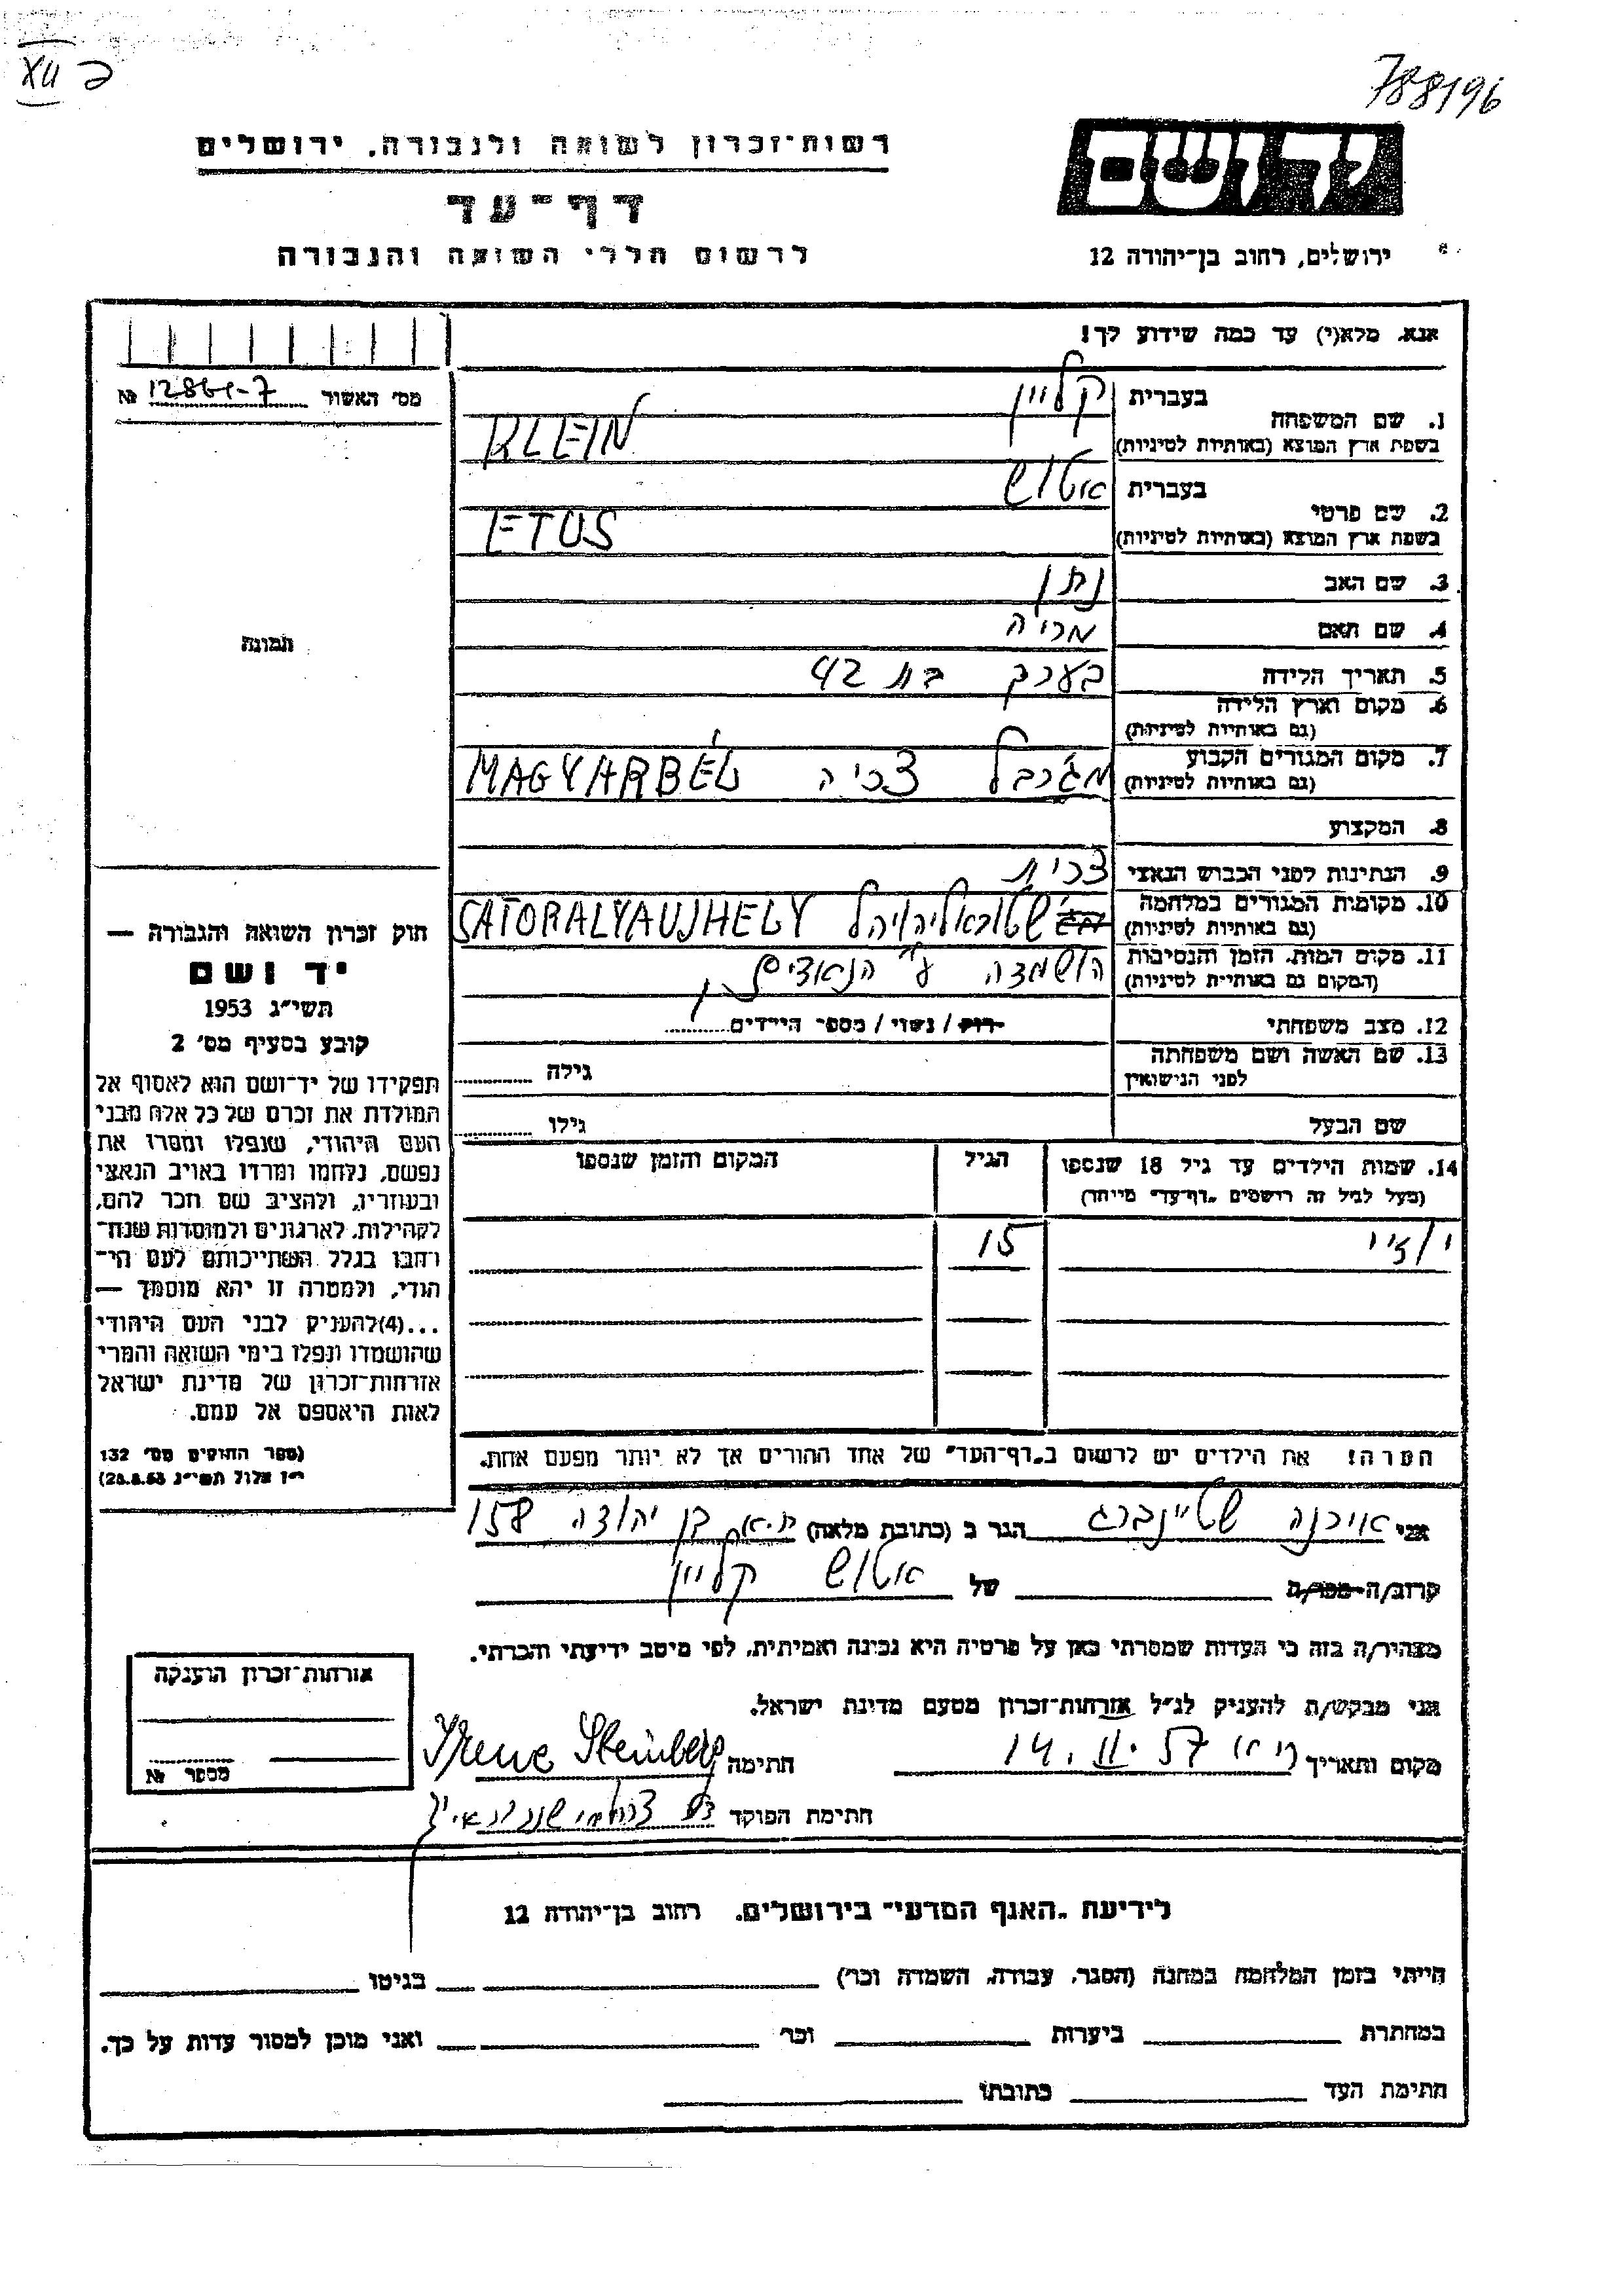 788196
XII
יד ושם
רשות־זכרון לשואה ולגבורה, ירושלים
דף־עד
לרשום חללי השואה והגבורה
ירושלים, רחוב בן־יהודה 12
אנא, מלא(י) עד כמה שידוע לך!
מס׳ האשור №
1. שם המשפחה
בעברית קליין
בשפת ארץ המוצא (באותיות לטיניות) KLEIN
2. שם פרטי
בעברית אטוש
בשפת ארץ המוצא (באותיות לטיניות) ETUS
3. שם האב נתן
4. שם האם מריה
תמונה
5. תאריך הלידה בערך בת 42
6. מקום וארץ הלידה
(גם באותיות לטיניות)
7. מקום המגורים הקבוע
(גם באותיות לטיניות) מג׳רבל צכיה MAGYARBÉL
8. המקצוע
9. הנתינות לפני הכבוש הנאצי צכית
10. מקומות המגורים במלחמה
(גם באותיות לטיניות) SATORALYAUJHELY
11. מקום המות, הזמן והנסיבות
(המקום גם באותיות לטיניות) הושמדה ע״י הנאצים
12. מצב משפחתי רוק / נשוי / מספר הילדים
13. שם האשה ושם משפחתה
לפני הנישואין גילה
שם הבעל גילו
14. שמות הילדים עד גיל 18 שנספו
(מעל לגיל זה רושמים „דף־עד״ מיוחד)
הגיל
המקום והזמן שנספו
15
חוק זכרון השואה והגבורה —
יד ושם
תשי״ג 1953
קובע בסעיף מס׳ 2
תפקידו של יד־ושם הוא לאסוף אל
המולדת את זכרם של כל אלה מבני
העם היהודי, שנפלו ומסרו את
נפשם, נלחמו ומרדו באויב הנאצי
ובעוזריו, ולהציב שם וזכר להם,
לקהילות, לארגונים ולמוסדות שנח־
רבו בגלל השתייכותם לעם הי־
הודי, ולמטרה זו יהא מוסמך —
...(4)להעניק לבני העם היהודי
שהושמדו ונפלו בימי השואה והמרי
אזרחות־זכרון של מדינת ישראל
לאות היאספם אל עמם.
(ספר החוקים מס׳ 132
י״ז אלול תשי״ג 28.8.53)
הערה! את הילדים יש לרשום ב„דף־העד״ של אחד ההורים אך לא יותר מפעם אחת.
אני אירנה שטיינברג הגר ב (כתובת מלאה) ת.א. בן יהודה 158
קרוב/ה מכר/ה של אטוש קליין
מצהיר/ה בזה כי העדות שמסרתי כאן על פרטיה היא נכונה ואמיתית, לפי מיטב ידיעתי והכרתי.
אני מבקש/ת להעניק לנ״ל אזרחות־זכרון מטעם מדינת ישראל.
מקום ותאריך 14.II.57 חתימה Irene Steinberg
חתימת הפוקד
אזרחות־זכרון הוענקה
מספר №
לידיעת „האגף המדעי״ בירושלים, רחוב בן־יהודה 12
הייתי בזמן המלחמה במחנה (הסגר, עבודה, השמדה וכו׳) בגיטו
במחתרת ביערות וכו׳ ואני מוכן למסור עדות על כך.
חתימת העד כתובתו